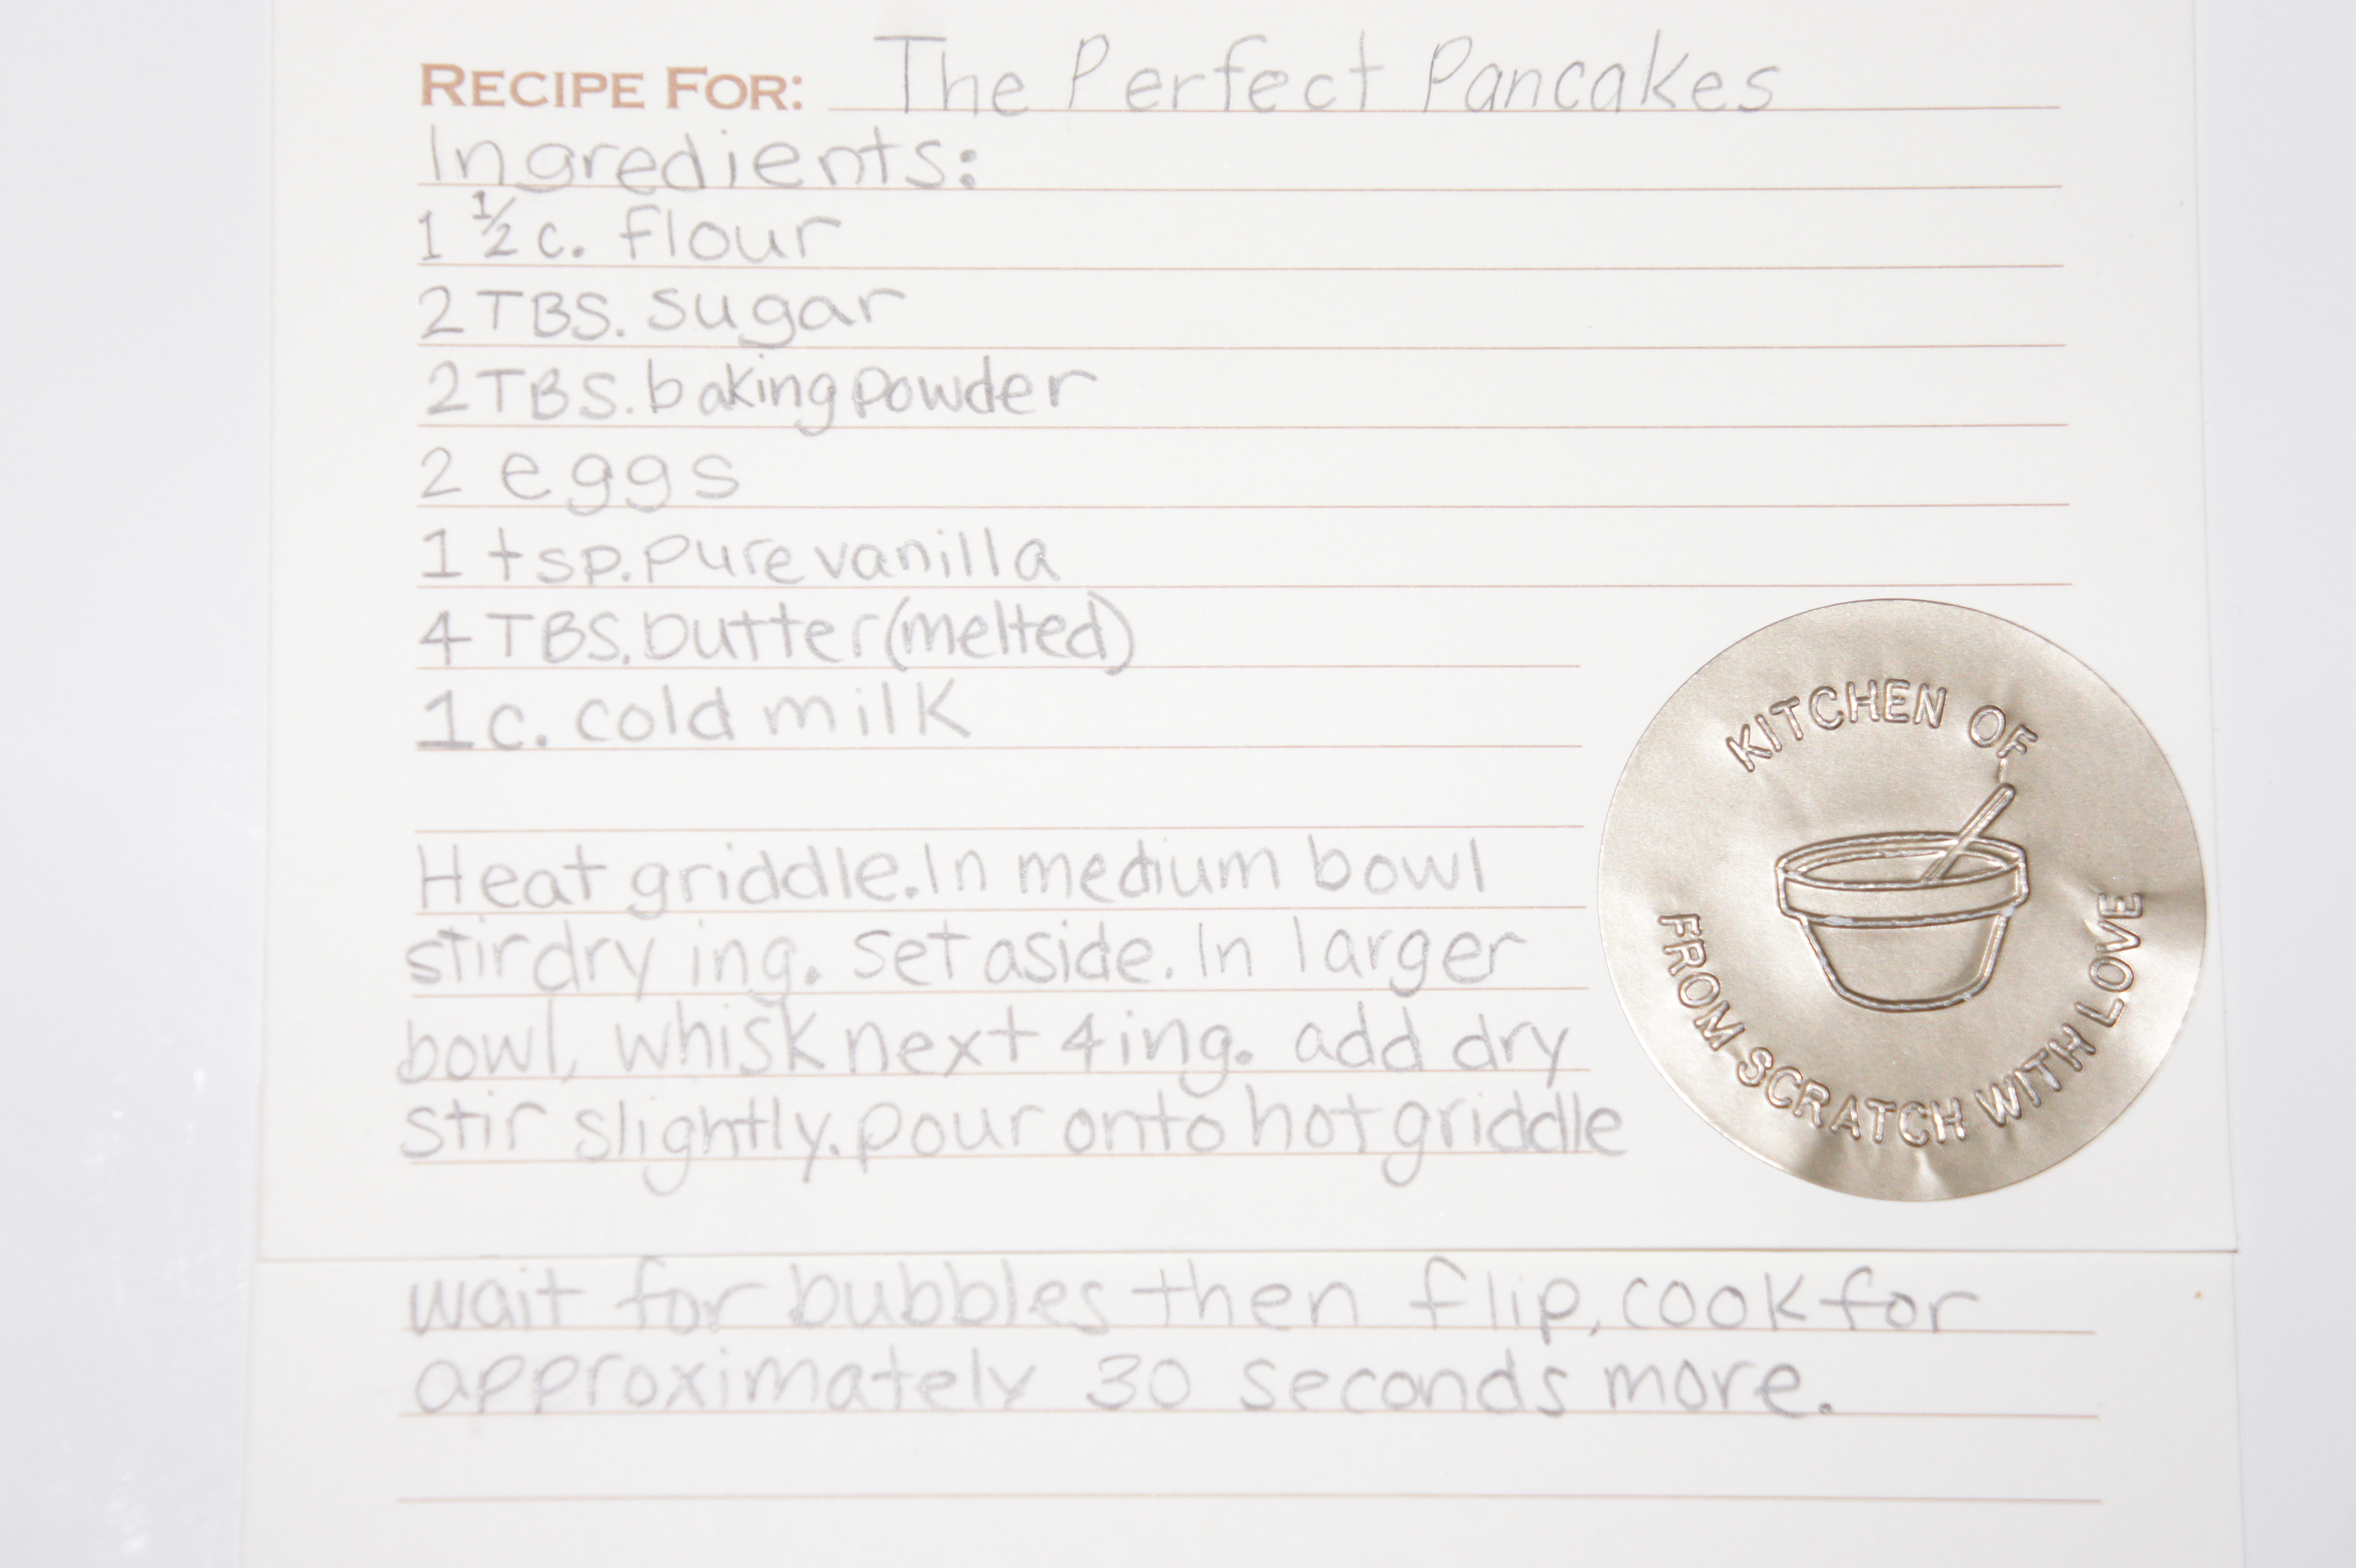 RECIPE FOR: The Perfect Pancakes
Ingredients:
1 ½ c. flour
2 TBS. sugar
2 TBS. baking powder
2 eggs
1 tsp. pure vanilla
4 TBS. butter (melted)
1 c. cold milk
Heat griddle. In medium bowl
stir dry ing. set aside. In larger
bowl, whisk next 4 ing. add dry
stir slightly. pour onto hot griddle
wait for bubbles then flip, cook for
approximately 30 seconds more.
KITCHEN OF
FROM SCRATCH WITH LOVE